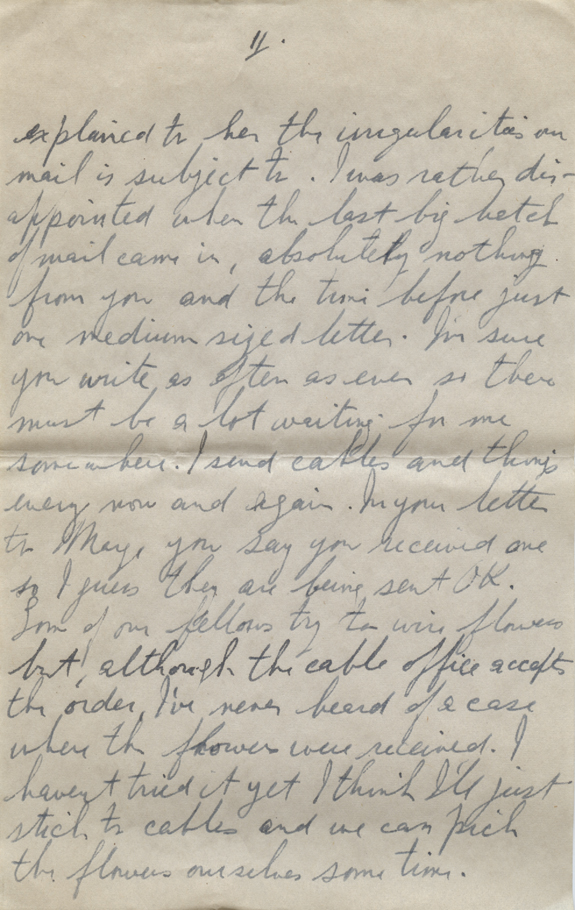 4.
explained to her the irregularities our
mail is subject to. I was rather dis-
appointed when the last big batch
of mail came in, absolutely nothing
from you and the time before just
one medium sized letter. I'm sure
you write as often as ever so there
must be a lot waiting for me
somewhere. I send cables and things
every now and again. In your letter
to Marge you say you received one
so I guess they are being sent OK.
Some of our fellows try to wire flowers
but, although the cable office accepts
the order, I've never heard of a case
where the flowers were received. I
haven't tried it yet I think I'll just
stick to cables and we can pick
the flowers ourselves some time.